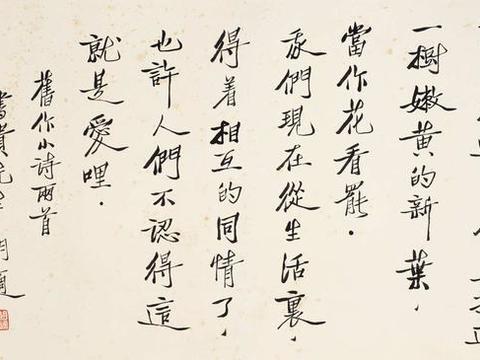 一樹嫩黄的新葉，
當作花看罷．
我們現在從生活裏，
得着相互的同情了，
也許人們不認得這
就是愛哩．
舊作小詩兩首
書貴 胡適